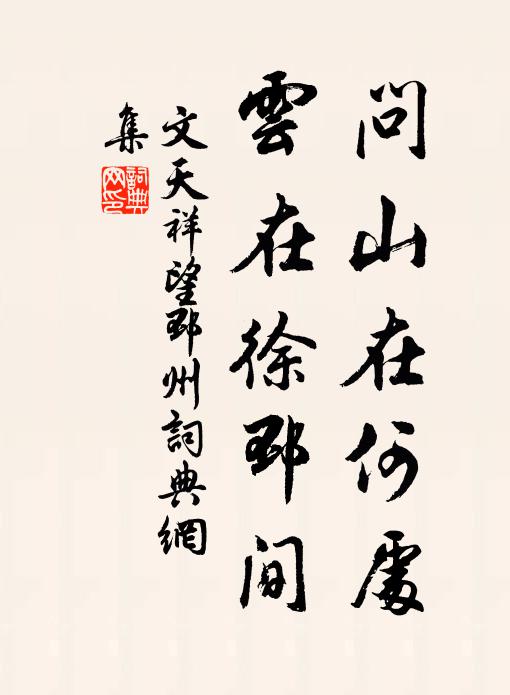 問山在何處
雲在徐邳間
文天祥望邳州詞典網
集
詞典網印